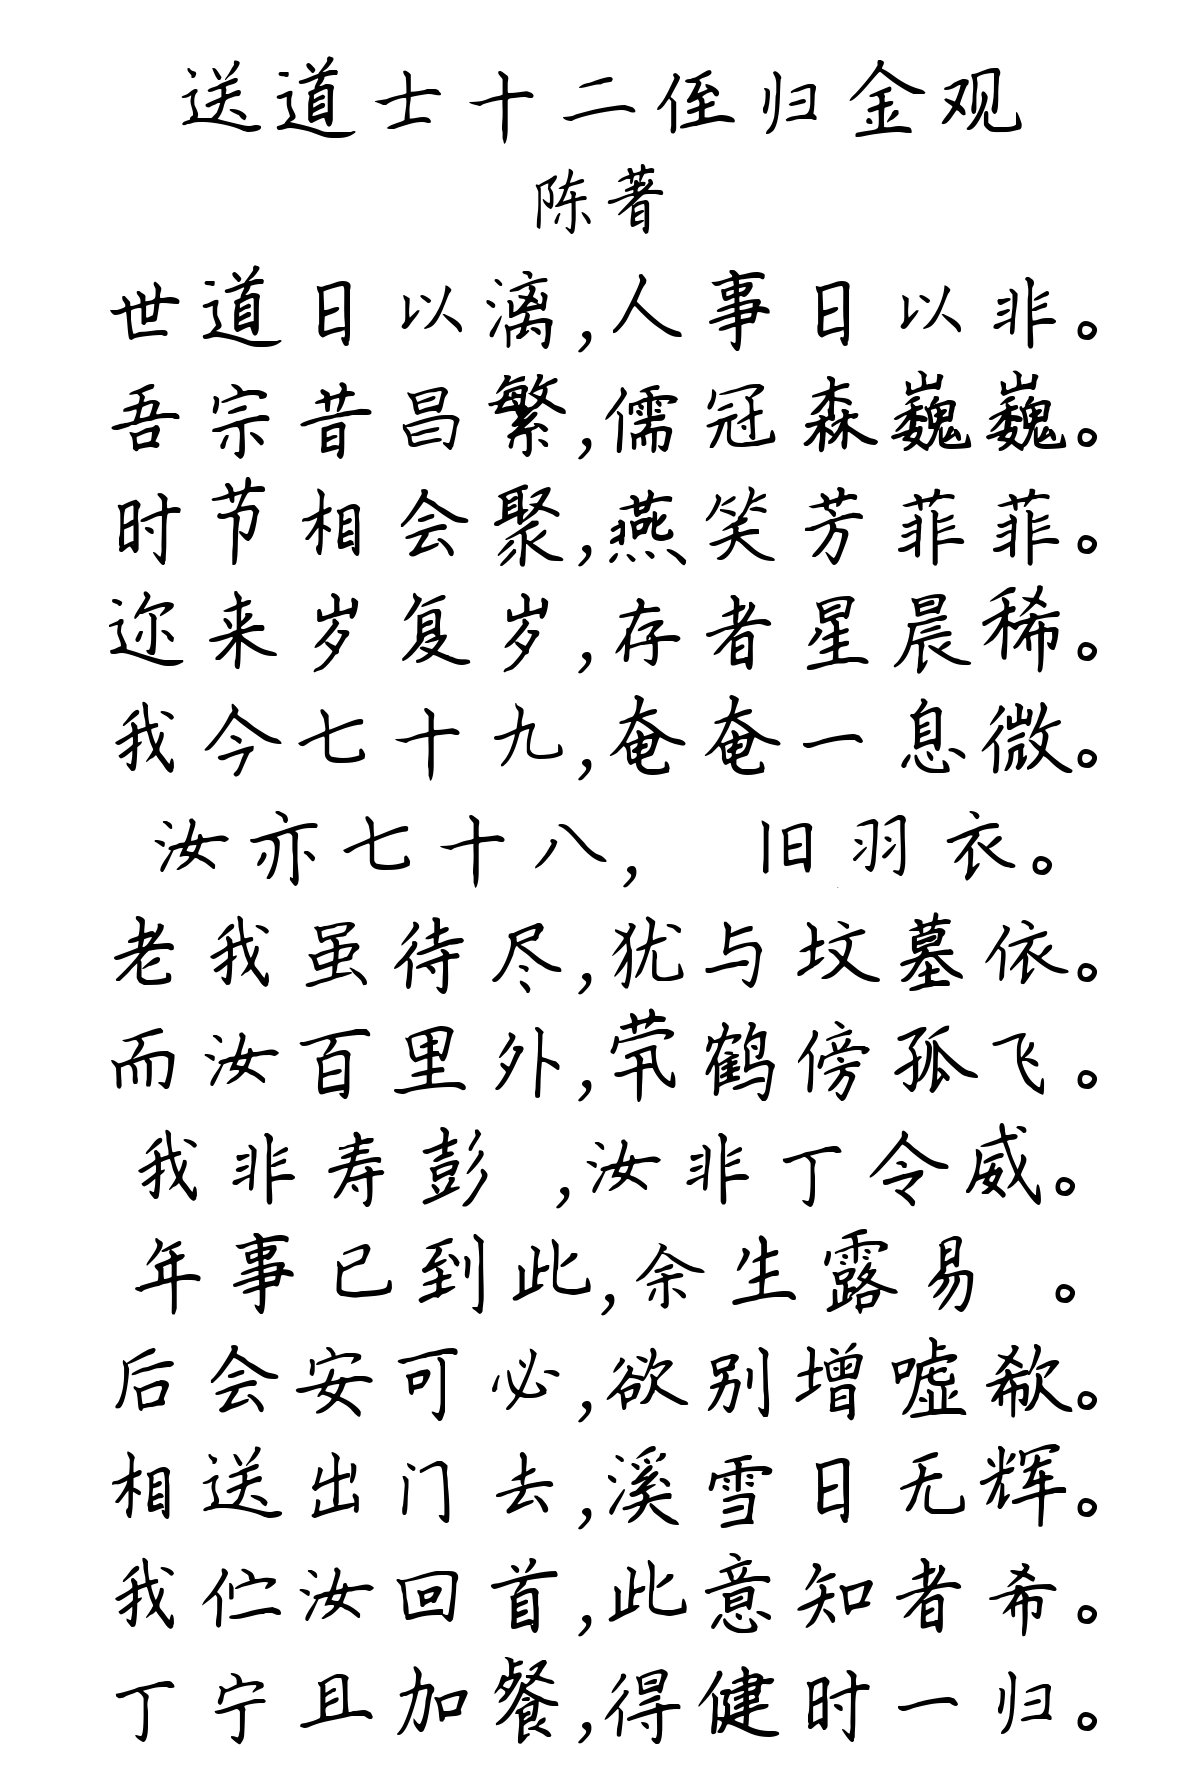 送道士十二侄归金观
陈著
世道日以漓,人事日以非。
吾宗昔昌繁,儒冠森巍巍。
时节相会聚,燕笑芳菲菲。
迩来岁复岁,存者星晨稀。
我今七十九,奄奄一息微。
汝亦七十八, 旧羽衣。
老我虽待尽,犹与坟墓依。
而汝百里外,茕鹤傍孤飞。
我非寿彭 ,汝非丁令威。
年事已到此,余生露易 。
后会安可必,欲别增嘘欷。
相送出门去,溪雪日无辉。
我伫汝回首,此意知者希。
丁宁且加餐,得健时一归。